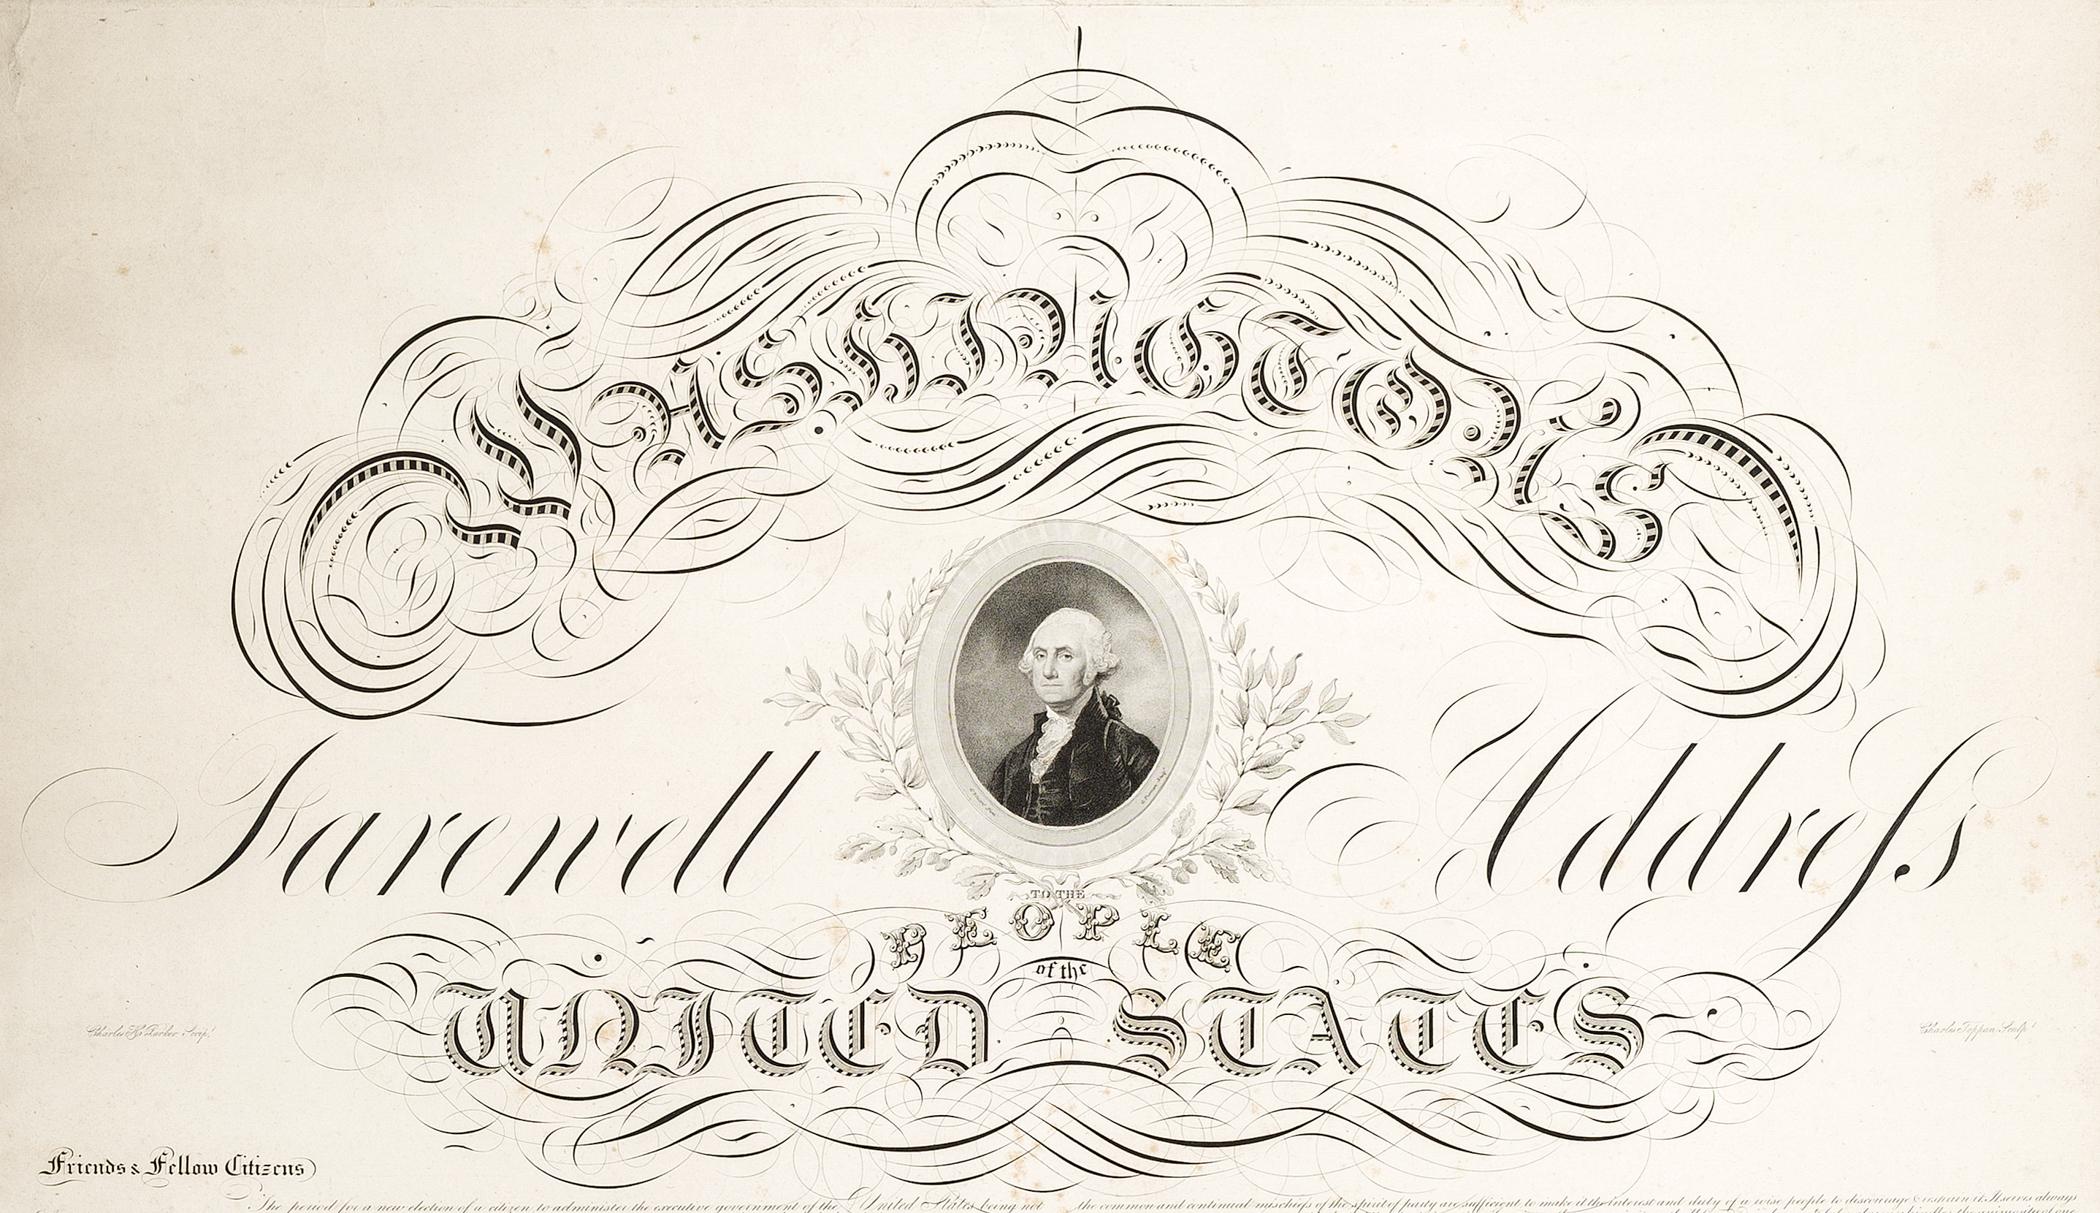 WASHINGTON'S
Farewell Address
TO THE
PEOPLE
of the
UNITED STATES
Charles H. Parker Scrip.t
Charles Toppan Sculp.t
Friends & Fellow Citizens
The period for a new election of a citizen, to administer the executive government of the United States being not
the common and continual mischiefs of the spirit of party are sufficient to make it the interest and duty of a wise people to discourage & restrain it. It serves always